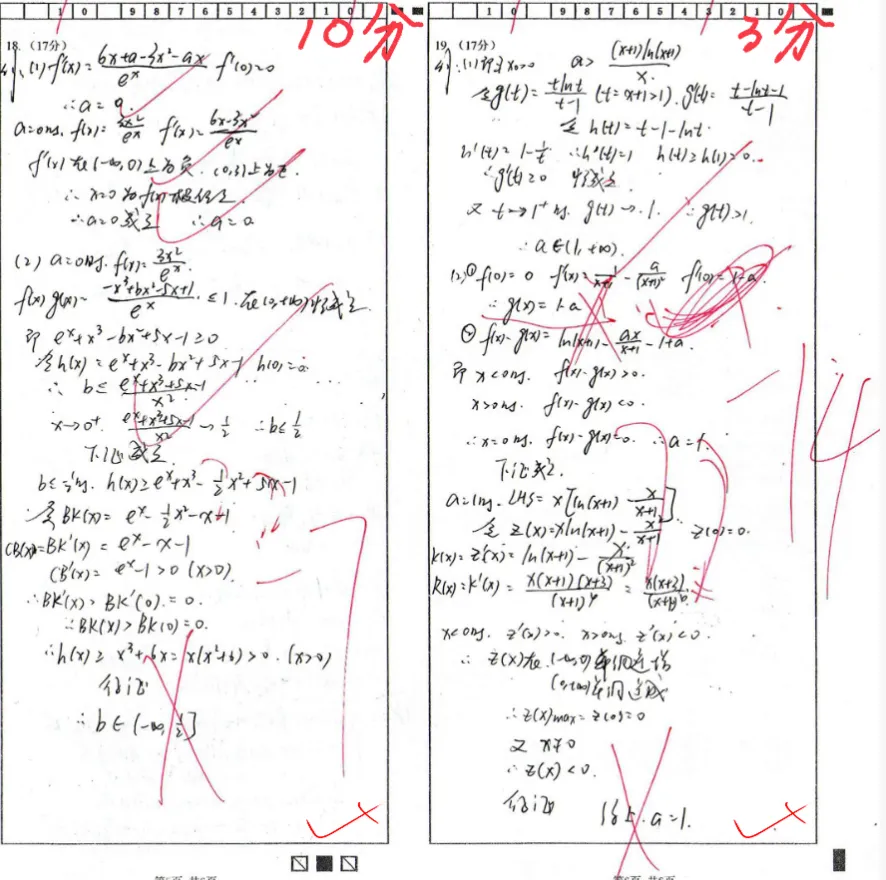 1 0 9 8 6 7 2 3 1 0
10分
18.（17分）
(1) f'(x) = (6x+a-3x²-ax)/eˣ f'(0)=0
∴a=0.
a=0时. f(x)=3x²/eˣ f'(x)=(6x-3x²)/eˣ
f'(x)在(-∞,0)上为负. (0,3)上为正.
∴x=0为f(x)极值点.
∴a=0成立 ∴a=0
(2) a=0时. f(x)=3x²/eˣ.
f(x)g(x)= (-x³+bx²-5x+1)/eˣ ≤1. 在(0,+∞)恒成立
即 eˣ+x³-bx²+5x-1≥0
令h(x)=eˣ+x³-bx²+5x-1 h(0)=0
∴ b≤ (eˣ+x³+5x-1)/x²
x→0⁺. (eˣ+x³+5x-1)/x² → 1/2 ∴b≤1/2
下证成立.
b≤1/2时. h(x)≥eˣ+x³-1/2x²+5x-1
令BK(x)= eˣ-1/2x²-x-1
CB(x)=BK'(x)=eˣ-x-1
CB'(x)=eˣ-1>0 (x>0).
∴BK'(x)>BK'(0)=0.
∴BK(x)>BK(0)=0.
∴h(x)≥x³+6x=x(x²+6)>0. (x>0)
得证
∴b∈(-∞,1/2]
-7
3分
19.（17分）
x₀>0 a> (x+1)ln(x+1)/x.
令g(t)= tlnt/(t-1) (t=x+1>1). g'(t)= (t-lnt-1)/(t-1)
令h(t)=t-1-lnt.
h'(t)=1-1/t h(t)≥h(1)=0.
∴g'(t)≥0 恒成立
又 t→1⁺时. g(t)→1. ∴g(t)>1.
∴a∈(1,+∞).
(2)① f(0)=0 f'(x)= 1/(x+1) - a/(x+1)² f'(0)=1-a
∴g(x)=1-a
② f(x)-g(x)=ln(x+1)- ax/(x+1) -1+a.
即 x<0时. f(x)-g(x)>0.
x>0时. f(x)-g(x)<0.
∴x=0时. f(x)-g(x)=0. ∴a=1.
下证成立.
a=1时. LHS=x[ln(x+1)- x/(x+1)].
令 z(x)=xln(x+1)- x²/(x+1) z(0)=0.
K(x)=z'(x)=ln(x+1)- x/(x+1)²
R(x)=K'(x)= x(x+1)(x+3)/(x+1)⁴ = x(x+3)/(x+1)
x<0时. z'(x)>0. x>0时. z'(x)<0.
∴ z(x)在(-∞,0)单调递增
(0,+∞)单调递减
∴z(x)max=z(0)=0
又 x≠0
∴z(x)<0.
得证 综上. a=1.
-14